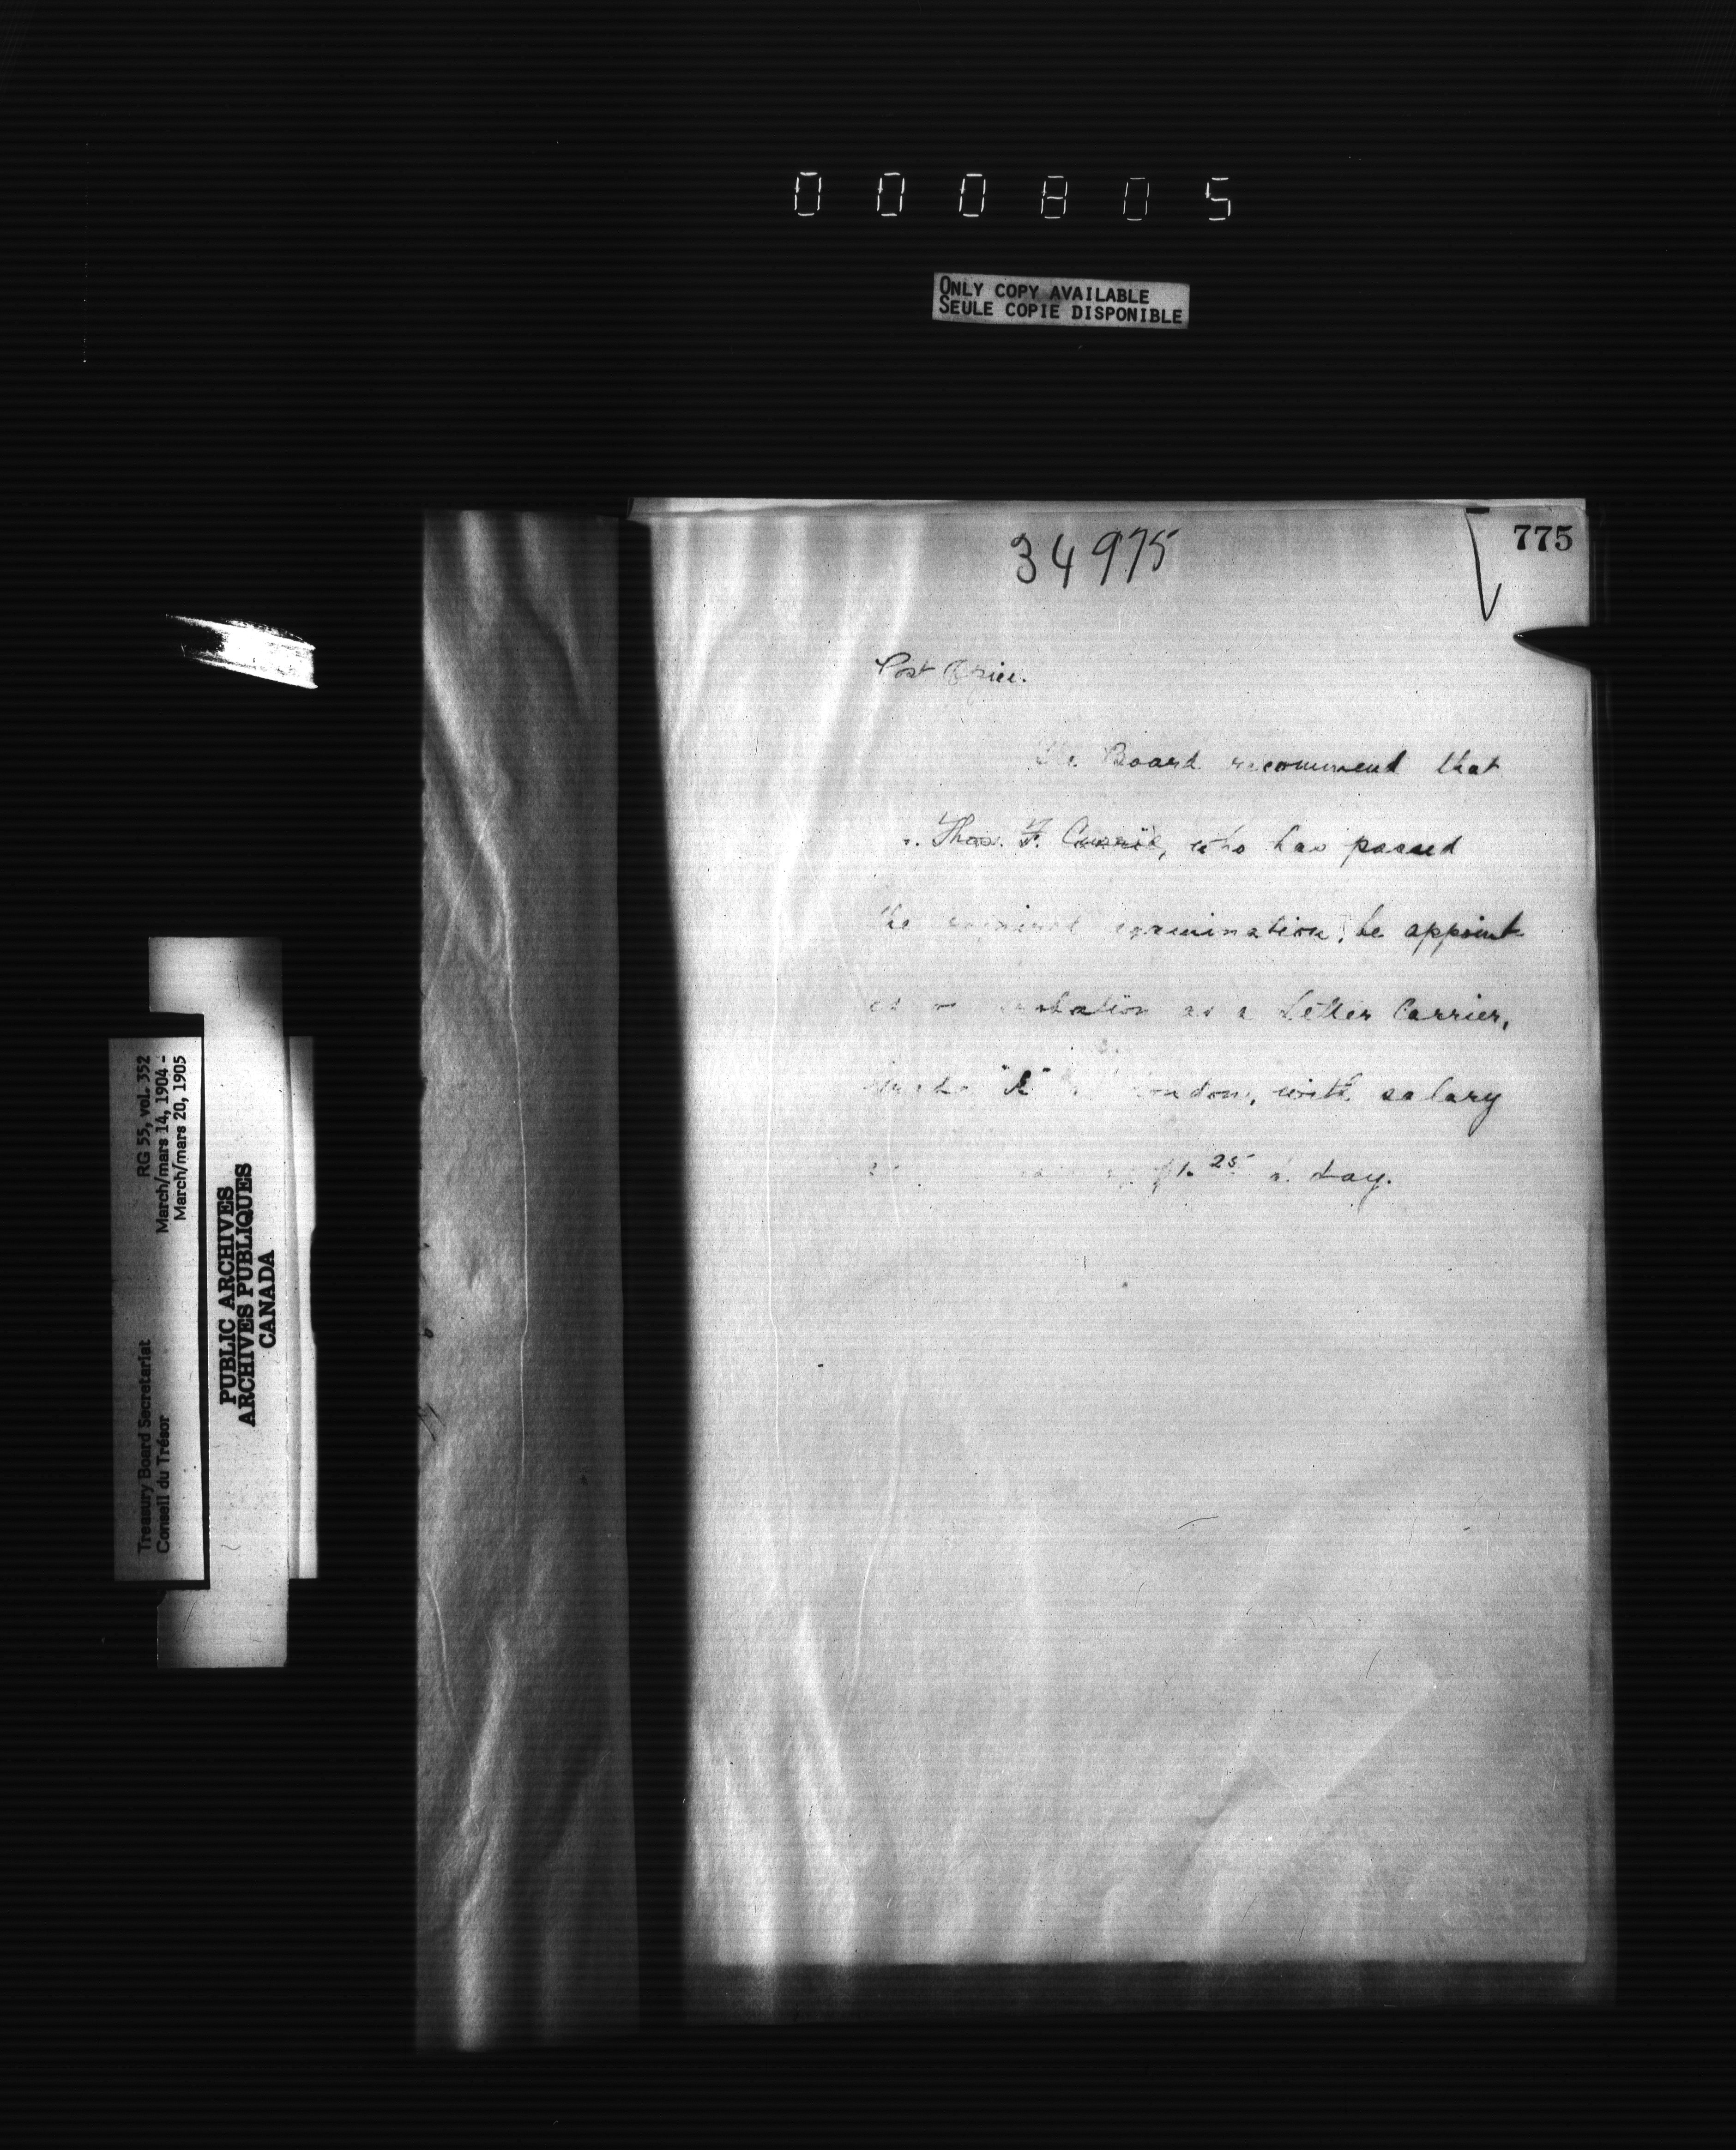 000805
ONLY COPY AVAILABLE
SEULE COPIE DISPONIBLE
775
34975
Post Office.
The Board recommend that
Thos. F. Currie, who has passed
the examination, be appoint
as a Letter Carrier,
London, with salary
$1.25 a day.
RG 55, vol. 352
March/mars 14, 1904 -
March/mars 20, 1905
Treasury Board Secretariat
Conseil du Trésor
PUBLIC ARCHIVES
ARCHIVES PUBLIQUES
CANADA